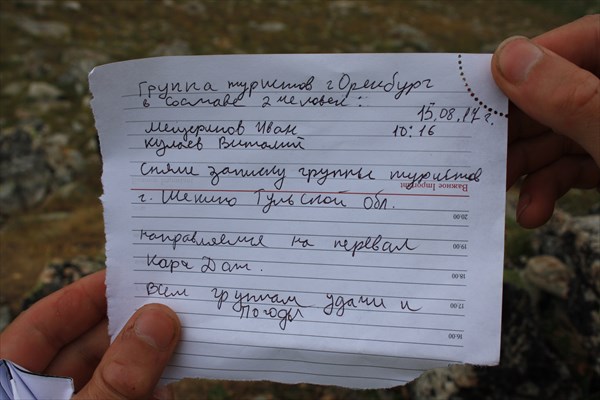 Группа туристов г Оренбург
в составе 2 человек:
15,08,17 г.
Мещеряков Иван 10:16
Кулаев Виталий
Сняли записку группы туристов
Важное Important
г. Щекино Тульской Обл.
20:00
направляемся на перевал
19:00
Кара Даш.
18:00
Всем группам удачи и
17:00
Погоды
16:00